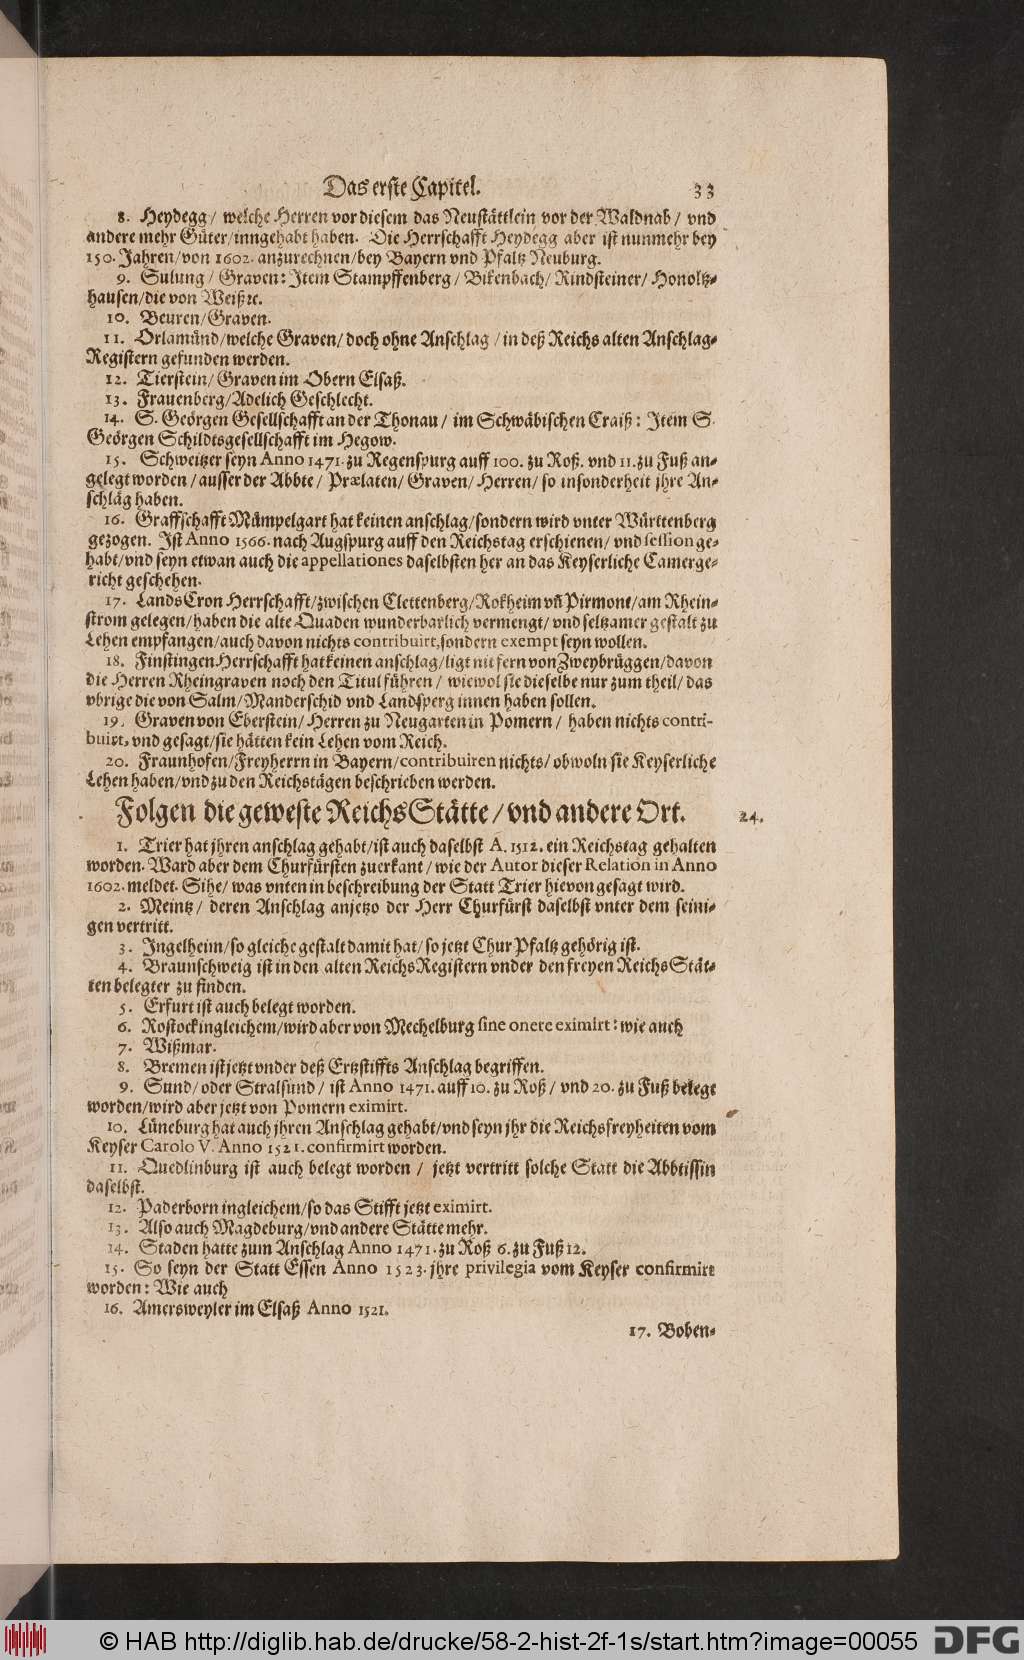 Das erste Capitel. 33
8. Heydegg / welche Herren vor diesem das Neustättlein vor der Waldnab / vnd
andere mehr Güter/inngehabt haben. Die Herrschafft Heydegg aber ist nunmehr bey
150. Jahren/von 1602. anzurechnen/bey Bayern vnd Pfaltz Neuburg.
9. Sulung / Graven: Item Stampffenberg / Bikenbach/ Rindsteiner/ Honoltz-
hausen/die von Weiß ꝛc.
10. Beuren/Graven.
11. Orlamünd/welche Graven/ doch ohne Anschlag / in deß Reichs alten Anschlag-
Registern gefunden werden.
12. Tierstein/ Graven im Obern Elsaß.
13. Frauenberg/Adelich Geschlecht.
14. S. Geörgen Gesellschafft an der Thonau / im Schwäbischen Craiß: Item S.
Geörgen Schildtsgesellschafft im Hegow.
15. Schweitzer seyn Anno 1471. zu Regenspurg auff 100. zu Roß. vnd 11. zu Fuß an-
gelegt worden / ausser der Abbte / Prælaten/ Graven/ Herren/ so insonderheit jhre An-
schläg haben.
16. Graffschafft Mümpelgart hat keinen anschlag/sondern wird vnter Württenberg
gezogen. Ist Anno 1566. nach Augspurg auff den Reichstag erschienen/ vnd session ge-
habt/vnd seyn etwan auch die appellationes daselbsten her an das Keyserliche Camerge-
richt geschehen.
17. LandsCron Herrschafft/zwischen Clettenberg/Rokheim vñ Pirmont/am Rhein-
strom gelegen/haben die alte Quaden wunderbarlich vermengt/ vnd seltzamer gestalt zu
Lehen empfangen/auch davon nichts contribuirt, sondern exempt seyn wollen.
18. Finstingen Herrschafft hat keinen anschlag/ligt nit fern von Zweybrüggen/davon
die Herren Rheingraven noch den Titul führen / wiewol sie dieselbe nur zum theil/ das
vbrige die von Salm/Manderschid vnd Landsperg innen haben sollen.
19. Graven von Eberstein/ Herren zu Neugarten in Pomern / haben nichts contri-
buirt, vnd gesagt/sie hätten kein Lehen vom Reich.
20. Fraunhofen/Freyherrn in Bayern/contribuiren nichts/ obwoln sie Keyserliche
Lehen haben/vnd zu den Reichstägen beschrieben werden.
Folgen die geweste ReichsStätte / vnd andere Ort. 24.
1. Trier hat jhren anschlag gehabt/ist auch daselbst A. 1512. ein Reichstag gehalten
worden. Ward aber dem Churfürsten zuerkant / wie der Autor dieser Relation in Anno
1602. meldet. Sihe/ was vnten in beschreibung der Statt Trier hievon gesagt wird.
2. Meintz / deren Anschlag anjetzo der Herr Churfürst daselbst vnter dem seini-
gen vertritt.
3. Ingelheim/so gleiche gestalt damit hat/so jetzt ChurPfaltz gehörig ist.
4. Braunschweig ist in den alten ReichsRegistern vnder den freyen ReichsStät-
ten belegter zu finden.
5. Erfurt ist auch belegt worden.
6. Rostock ingleichem/wird aber von Mechelburg sine onere eximirt: wie auch
7. Wißmar.
8. Bremen ist jetzt vnder deß Ertzstiffts Anschlag begriffen.
9. Sund/ oder Stralsund / ist Anno 1471. auff 10. zu Roß / vnd 20. zu Fuß belegt
worden/wird aber jetzt von Pomern eximirt.
10. Lüneburg hat auch jhren Anschlag gehabt/vnd seyn jhr die Reichsfreyheiten vom
Keyser Carolo V. Anno 1521. confirmirt worden.
11. Quedlinburg ist auch belegt worden / jetzt vertritt solche Statt die Abbtissin
daselbst.
12. Paderborn ingleichem/so das Stifft jetzt eximirt.
13. Also auch Magdeburg/vnd andere Stätte mehr.
14. Staden hatte zum Anschlag Anno 1471. zu Roß 6. zu Fuß 12.
15. So seyn der Statt Essen Anno 1523. jhre privilegia vom Keyser confirmirt
worden: Wie auch
16. Amersweyler im Elsaß Anno 1521.
17. Boben-
© HAB http://diglib.hab.de/drucke/58-2-hist-2f-1s/start.htm?image=00055 DFG